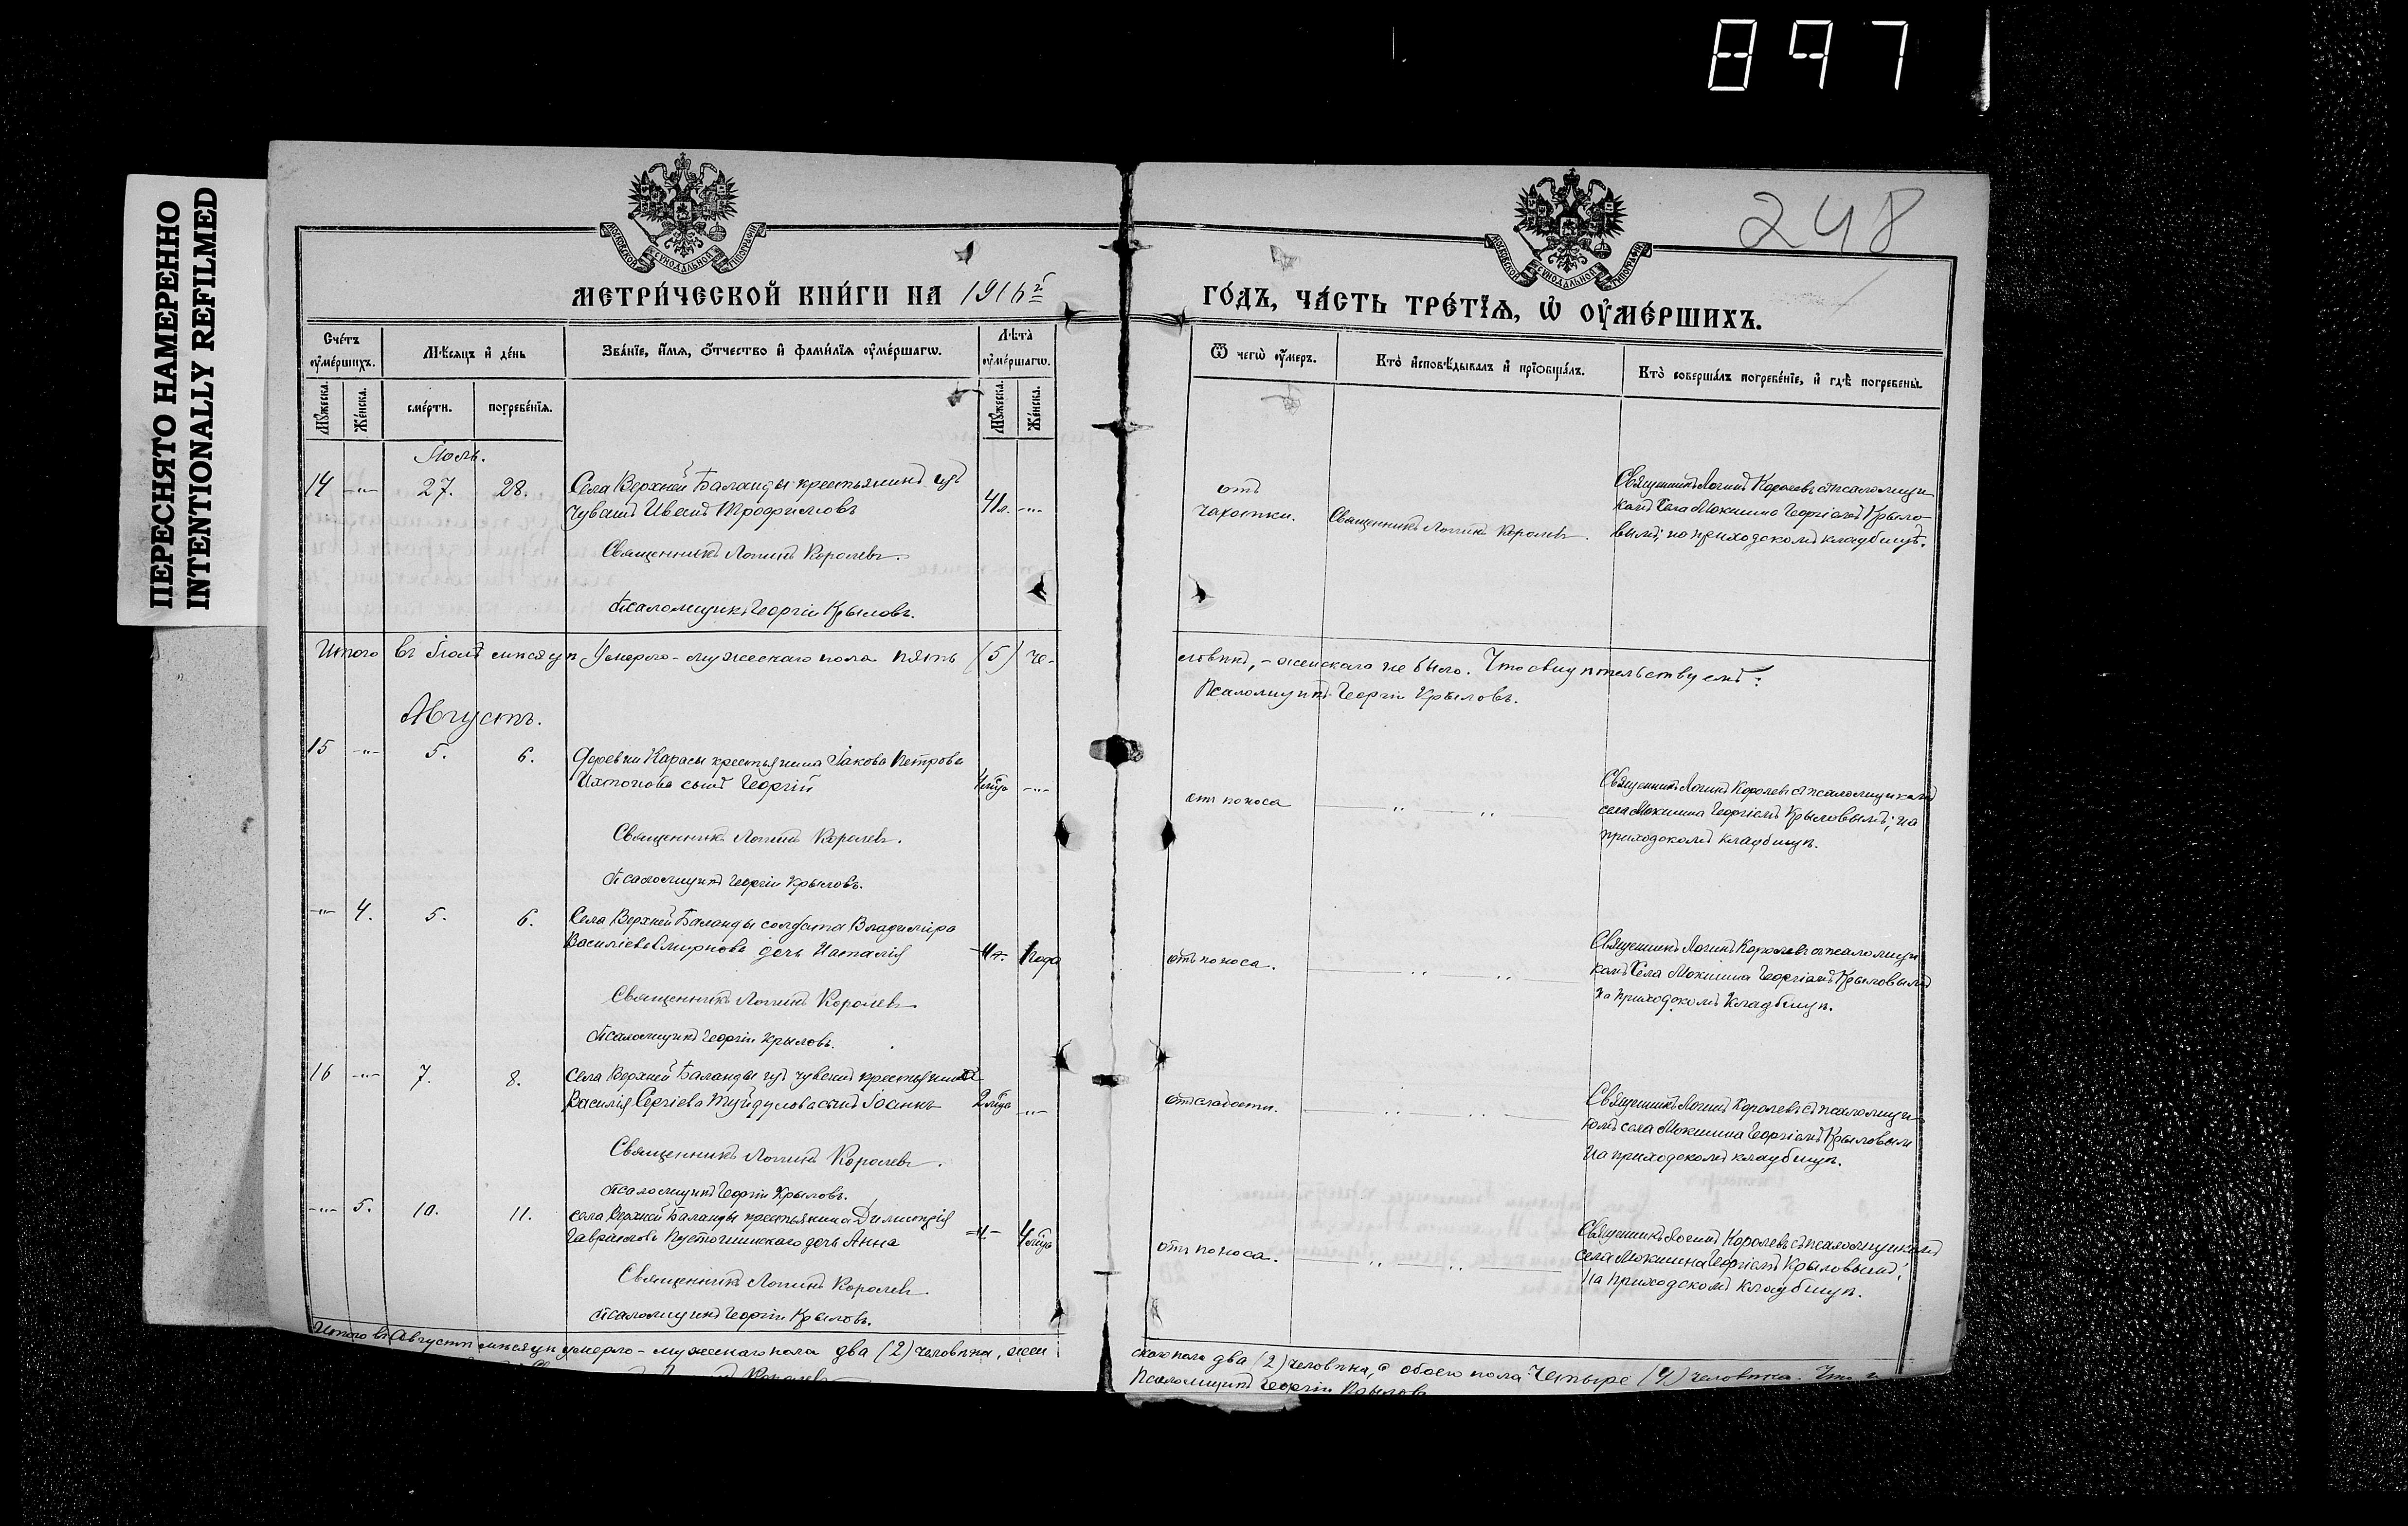 897
ПЕРЕСНЯТО НАМЕРЕННО
INTENTIONALLY REFILMED
248
МОСКОВСКОЙ СѴНОДАЛЬНОЙ ТИПОГРАФІИ
МОСКОВСКОЙ СѴНОДАЛЬНОЙ ТИПОГРАФІИ
МЕТРИ́ЧЕСКОЙ КНИ́ГИ НА 1916 г
ГО́ДЪ, ЧА́СТЬ ТРЕ́ТІѦ, Ѡ ОУМЕ́РШИХЪ.
Сче́тъ оуме́ршихъ.
Мꙋжеска.
Же́нска.
Мѣсяцъ и де́нь
сме́рти.
погребе́нїѧ.
Зва́нїе, и́мѧ, о́тчество и фами́лїѧ оуме́ршагѡ.
Лѣта̀ оуме́ршагѡ.
Мꙋжеска.
Же́нска.
Ѿ чегѡ̀ оу́меръ.
Кто̀ исповѣ́дывалъ и прїобща́лъ.
Кто̀ соверша́лъ погребе́нїе, и гдѣ̀ погребены̀.
Іюль.
14 -"- 27. 28.
Села Верхней Баланды крестьянинъ изъ
чувашъ Иванъ Трофимовъ
41 л. -"-
Священникъ Логинъ Королевъ.
Псаломщикъ Георгій Крыловъ.
отъ
чахотки.
Священникъ Логинъ Королевъ.
Священникъ Логинъ Королевъ съ псаломщи
комъ села Мокшина Георгіемъ Крыло
вымъ; на приходскомъ кладбищѣ.
Итого въ Іюлѣ мѣсяцѣ умерло - мужескаго пола пять (5) че-
ловѣкъ, - женскаго не было. Что свидѣтельствуемъ:
Псаломщикъ Георгій Крыловъ.
Августъ.
15 -"- 5. 6.
Деревни Карасы крестьянина Іакова Петрова
сынъ Георгій
-"-
Священникъ Логинъ Королевъ.
Псаломщикъ Георгій Крыловъ.
отъ поноса
" "
Священникъ Логинъ Королевъ съ псаломщикомъ
села Мокшина Георгіемъ Крыловымъ; на
приходскомъ кладбищѣ.
-"- 4. 5. 6.
Села Верхней Баланды солдата Владиміра
Василіева Смирнова дочь Наталія
-"- 1 года
Священникъ Логинъ Королевъ
Псаломщикъ Георгій Крыловъ.
отъ поноса.
" "
Священникъ Логинъ Королевъ съ псаломщи
комъ Села Мокшина Георгіемъ Крыловымъ
на приходскомъ кладбищѣ.
16 -"- 7. 8.
Села Верхней Баланды изъ чувашъ крестьянина
Василія Сергіева сынъ Іоаннъ
2 мѣс. -"-
Священникъ Логинъ Королевъ.
Псаломщикъ Георгій Крыловъ.
отъ слабости.
" "
Священникъ Логинъ Королевъ съ псаломщи-
комъ села Мокшина Георгіемъ Крыловымъ
на приходскомъ кладбищѣ.
-"- 5. 10. 11.
Села Верхней Баланды крестьянина Димитрія
Гавріилова Пустошинскаго дочь Анна
-"- 4 мѣс.
Священникъ Логинъ Королевъ.
Псаломщикъ Георгій Крыловъ.
отъ поноса.
" "
Священникъ Логинъ Королевъ съ псаломщикомъ
села Мокшина Георгіемъ Крыловымъ;
на приходскомъ кладбищѣ.
Итого въ Августѣ мѣсяцѣ умерло - мужескаго пола два (2) человѣка, жен
скаго пола два (2) человѣка, а обоего пола четыре (4) человѣка. Что
Королевъ
Псаломщикъ Георгій Крыловъ